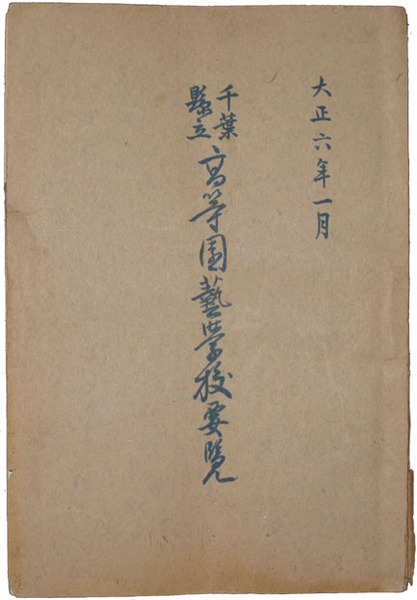 大正六年一月
千葉縣立高等園藝学校要覧